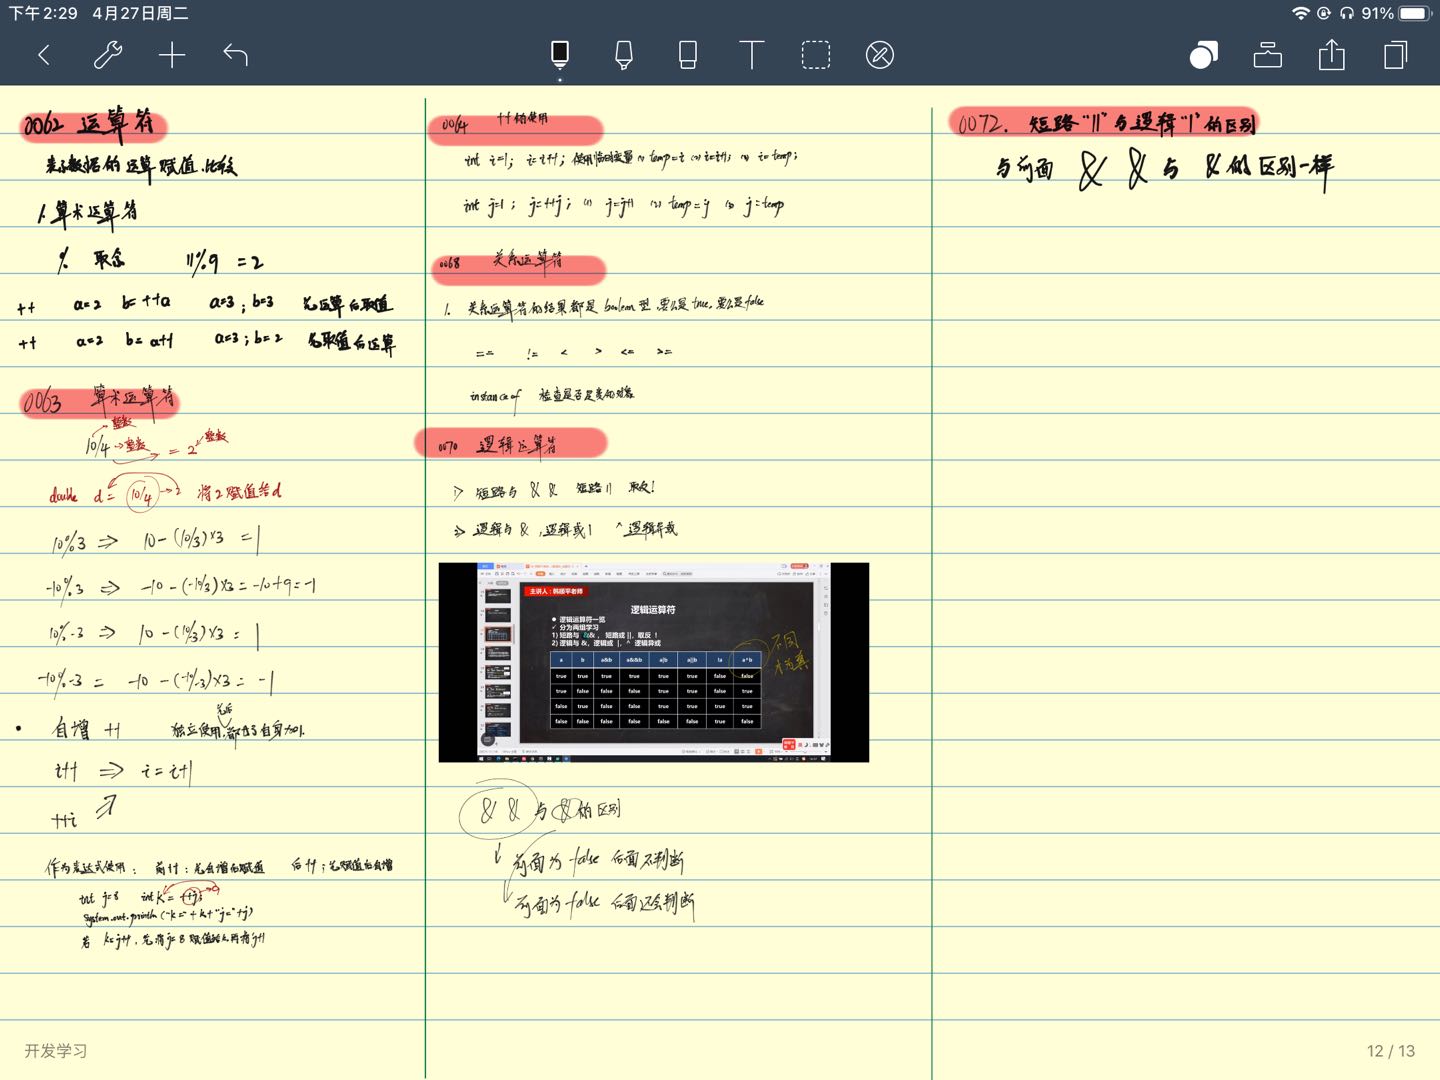 下午2:29 4月27日周二
91%
0062 运算符
表示数据的运算 赋值、比较
1. 算术运算符
% 取余 11%9 =2
++ a=2 b=++a a=3; b=3 先运算后取值
++ a=2 b=a++ a=3; b=2 先取值后运算
0063 算术运算符
整数
10/4 →整数 = 2 整数
double d= 10/4 →2 将2赋值给d
10%3 ⇒ 10-(10/3)×3 =1
-10%3 ⇒ -10-(-10/3)×3=-10+9=-1
10%-3 ⇒ 10-(10/3)×3= 1
-10%-3 = -10-(-10/-3)×3= -1
自增 ++ 独立使用,
i++ ⇒ i=i+1
++i
作为表达式使用: 前++: 先自增后赋值 后++; 先赋值后自增
int j=8 int k= ++j;
System.out.println ("k=" + k+"j="+j)
若 k=j++, 先将j=8 赋值给k 再将j++
0064 ++的使用
int i=1; i=i++; 使用临时变量 (1) temp=i (2) i=i+1; (3) i=temp;
int j=1; j=++j; (1) j=j+1 (2) temp=j (3) j=temp
0068 关系运算符
1. 关系运算符的结果都是 boolean 型, 要么是 true, 要么是 false
== != < > <= >=
instanceof 检查是否是类的对象
0070 逻辑运算符
1> 短路与 && 短路|| 取反!
2> 逻辑与&, 逻辑或| ^ 逻辑异或
主讲人:韩顺平老师
逻辑运算符
逻辑运算符一览
分为两组学习
1) 短路与 && , 短路或 ||,取反 !
2) 逻辑与 &,逻辑或 |,^ 逻辑异或
不同
才为真
a b a&b a&&b a|b a||b !a a^b
true true true true true true false false
true false false false true true false true
false true false false true true true true
false false false false false false true false
&& 与 & 的区别
前面为 false 后面不判断
前面为 false 后面还会判断
0072. 短路"||"与逻辑"|"的区别
与前面 && 与 &的区别一样
开发学习
12 / 13